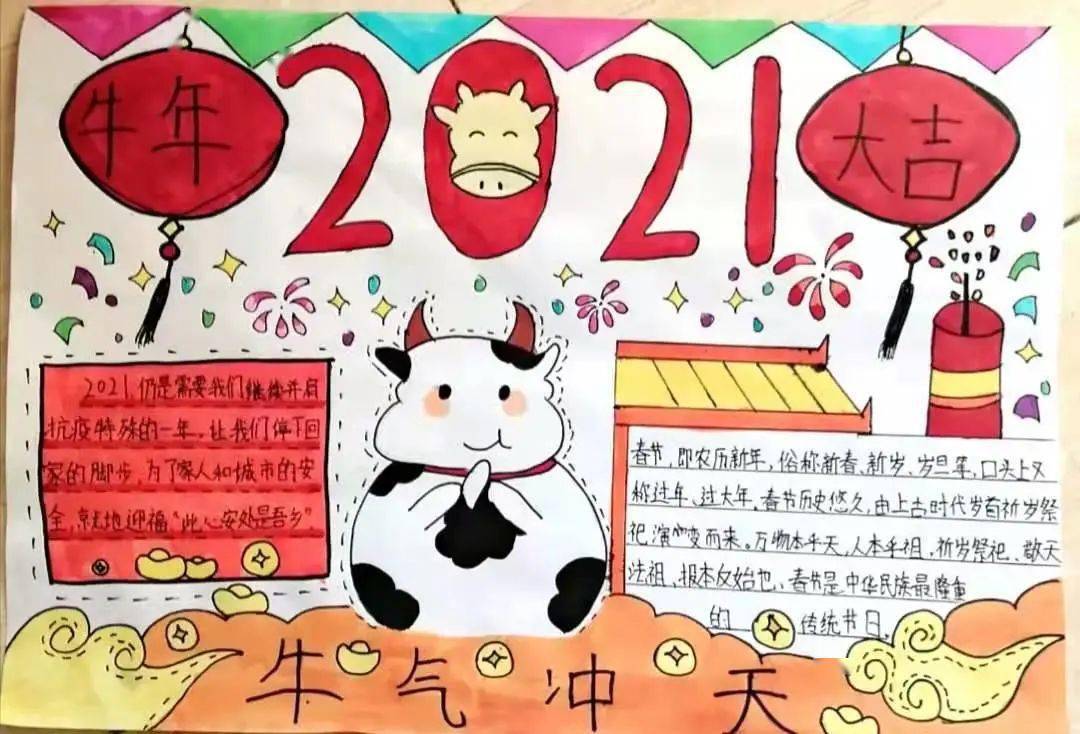 牛年
2021
大吉
2021,仍是需要我们继续开启
抗疫特殊的一年,让我们停下回
家的脚步,为了家人和城市的安
全,就地迎福“此心安处是吾乡”.
春节,即农历新年,俗称新春、新岁、岁旦等,口头上又
称过年、过大年。春节历史悠久,由上古时代岁首祈岁祭
祀演变而来。万物本乎天,人本乎祖,祈岁祭祀、敬天
法祖,报本反始也、春节是中华民族最隆重
的 传统节日。
牛气冲天